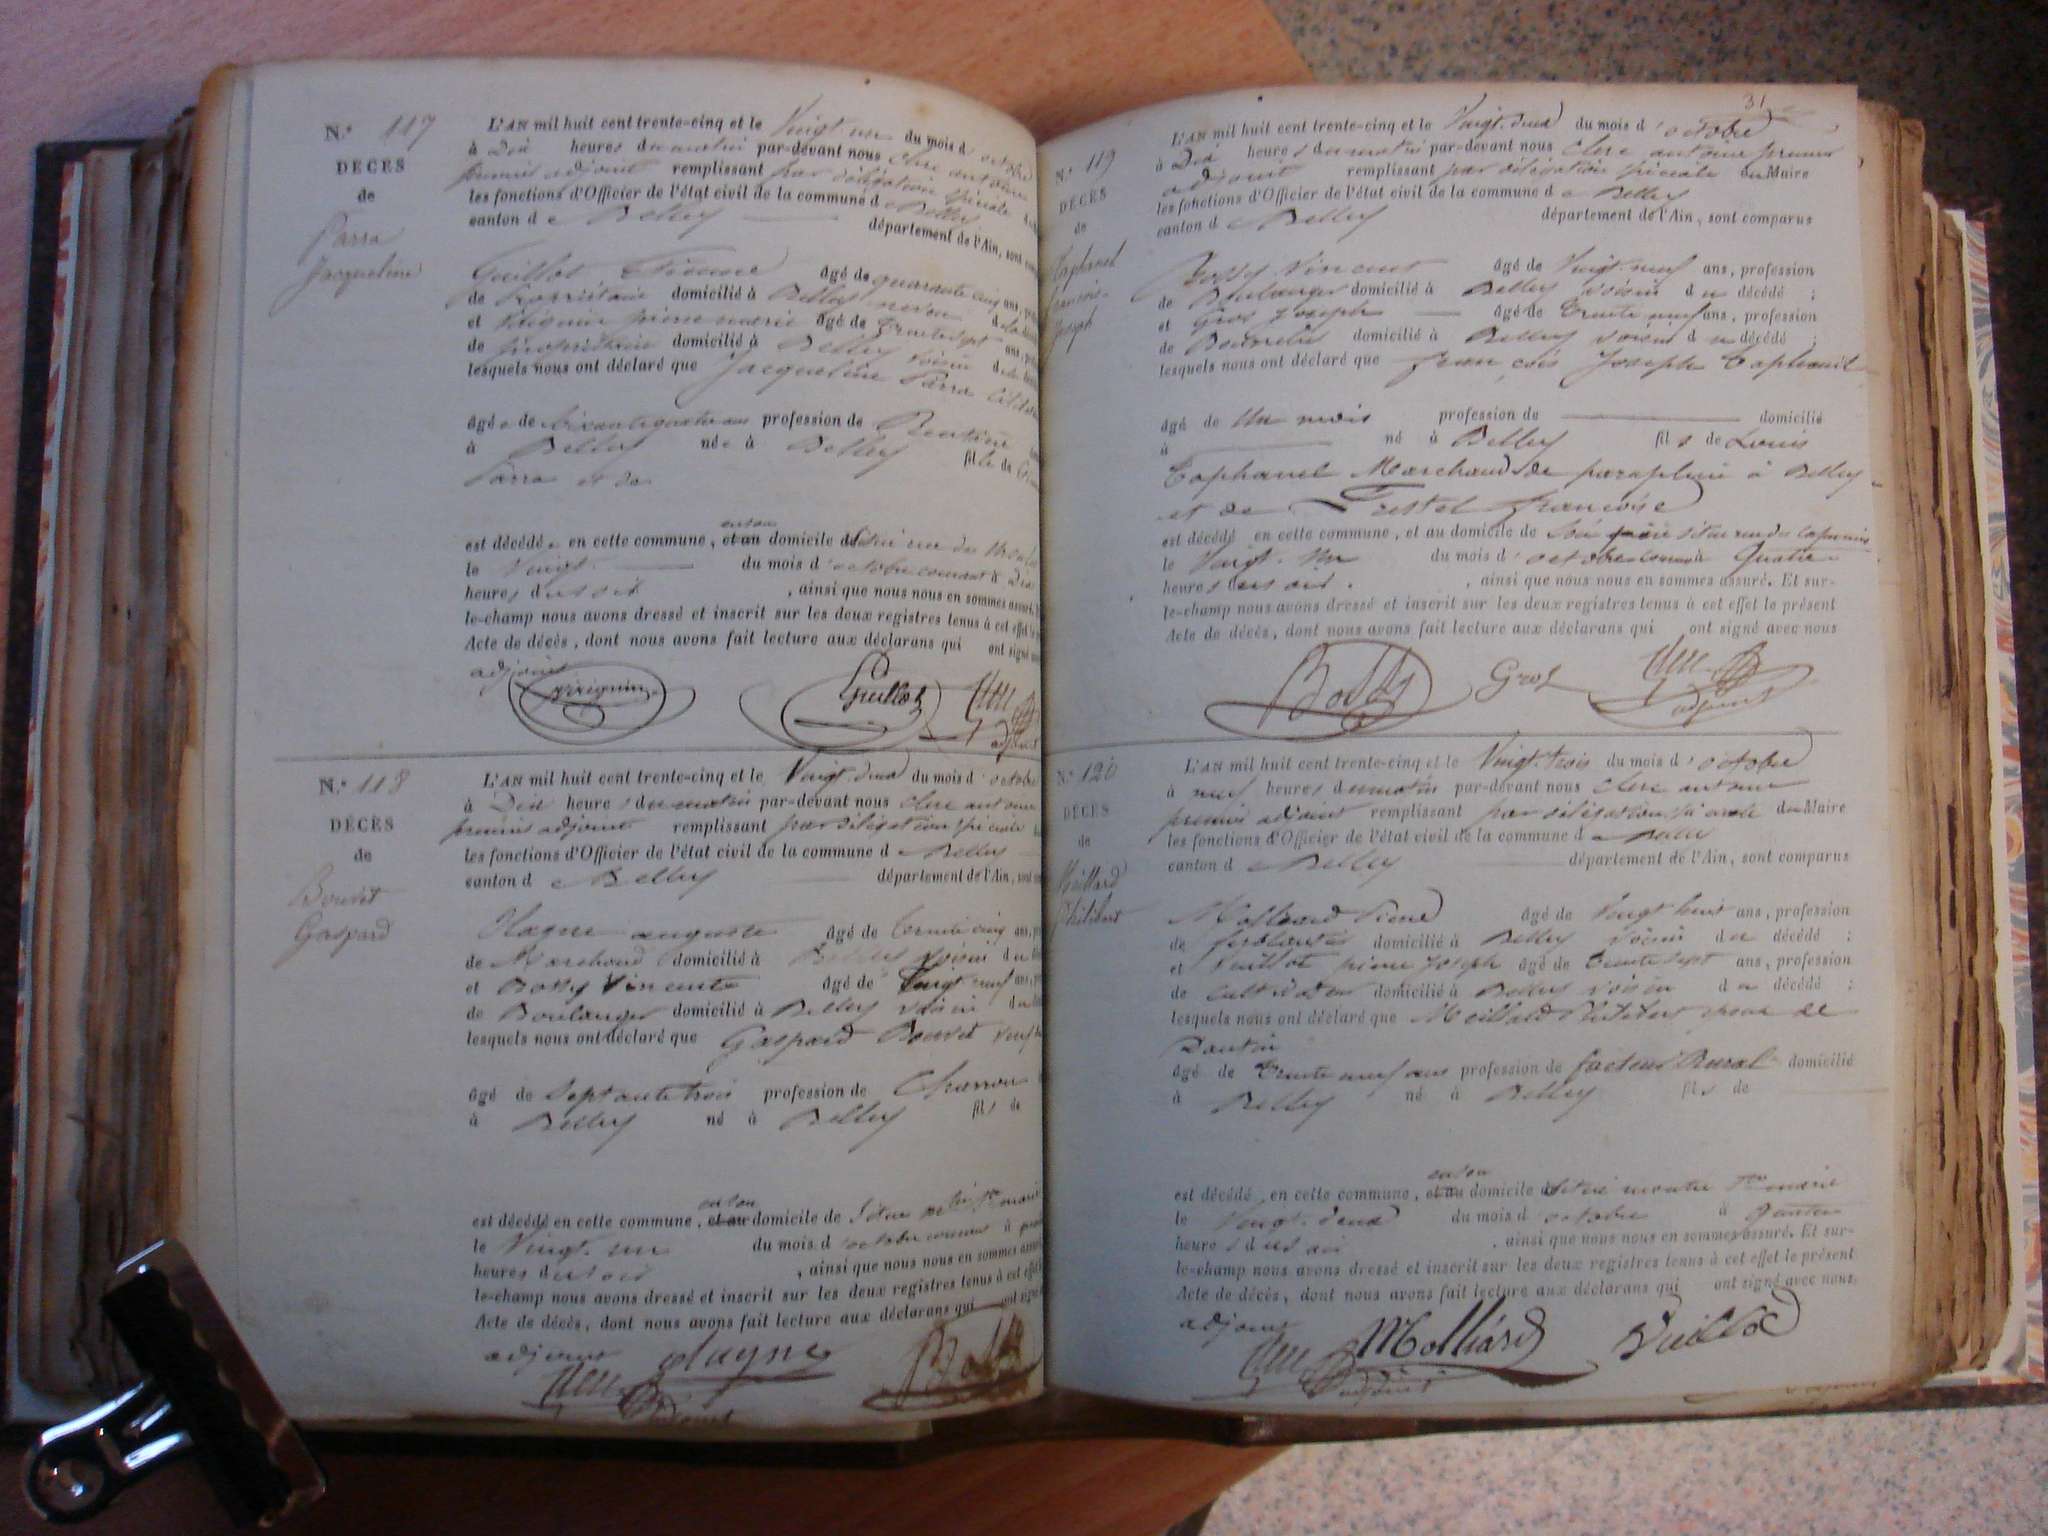 N.° 117
DÉCÈS
de
Parra
Jacqueline
L'AN mil huit cent trente-cinq et le Vingt un du mois d'octobre
à Dix heures du matin par-devant nous Clerc antoine
premier adjoint remplissant par délégation spéciale
les fonctions d'Officier de l'état civil de la commune de Belley
canton de Belley département de l'Ain, sont
Guillot Étienne âgé de quarante cinq ans,
de Propriétaire domicilié à Belley neveu
et pierre marie âgé de trente sept ans,
de propriétaire domicilié à Belley voisin
lesquels nous ont déclaré que Jacqueline Parra
âgée de soixante quatre ans profession de Rentière
à Belley née à Belley fille de
Parra et de
est décédée en cette commune, en son domicile situé rue du
le Vingt du mois d'octobre courant à Dix
heures du soir, ainsi que nous nous en sommes assuré.
le-champ nous avons dressé et inscrit sur les deux registres tenus à cet effet
Acte de décès, dont nous avons fait lecture aux déclarans qui ont signé
adjoint
Guillot
adjoint
N.° 118
DÉCÈS
de
Bouvet
Gaspard
L'AN mil huit cent trente-cinq et le Vingt deux du mois d'octobre
à Dix heures du matin par-devant nous Clerc antoine
premier adjoint remplissant par délégation spéciale
les fonctions d'Officier de l'état civil de la commune de Belley
canton de Belley département de l'Ain,
auguste âgé de trente cinq ans,
de Marchand domicilié à Belley voisin du
et Bossy Vincent âgé de Vingt neuf ans,
de Boulanger domicilié à Belley voisin du
lesquels nous ont déclaré que Gaspard Bouvet
âgé de Septante trois profession de Charron
à Belley né à Belley fils de
est décédé en cette commune, en son domicile de situé
le Vingt un du mois d'octobre courant à
heures du soir, ainsi que nous nous en sommes assuré.
le-champ nous avons dressé et inscrit sur les deux registres tenus à cet effet
Acte de décès, dont nous avons fait lecture aux déclarans qui ont signé
adjoint
31
N.° 119
DÉCÈS
de
Taphanel
françois
Joseph
L'AN mil huit cent trente-cinq et le Vingt deux du mois d'octobre
à Dix heures du matin par-devant nous Clerc antoine premier
adjoint remplissant par délégation spéciale du Maire
les fonctions d'Officier de l'état civil de la commune de Belley
canton de Belley département de l'Ain, sont comparus
Bossy Vincent âgé de Vingt neuf ans, profession
de Boulanger domicilié à Belley voisin du décédé ;
et Gros Joseph âgé de trente neuf ans, profession
de Bourrelier domicilié à Belley voisin du décédé ;
lesquels nous ont déclaré que françois Joseph Taphanel
âgé de Un mois profession de domicilié
à né à Belley fils de Louis
Taphanel Marchand de parapluie à Belley
et de Françoise
est décédé en cette commune, et au domicile de son père situé rue des Capucins
le Vingt un du mois d'octobre courant à Quatre
heures du soir, ainsi que nous nous en sommes assuré. Et sur-
le-champ nous avons dressé et inscrit sur les deux registres tenus à cet effet le présent
Acte de décès, dont nous avons fait lecture aux déclarans qui ont signé avec nous
Gros
adjoint
N.° 120
DÉCÈS
de
Maillard
Philibert
L'AN mil huit cent trente-cinq et le Vingt trois du mois d'octobre
à neuf heures du matin par-devant nous Clerc antoine
premier adjoint remplissant par délégation spéciale du Maire
les fonctions d'Officier de l'état civil de la commune de Belley
canton de Belley département de l'Ain, sont comparus
Molliard Pierre âgé de Vingt huit ans, profession
de ferblantier domicilié à Belley voisin du décédé ;
et Vuillot pierre Joseph âgé de trente sept ans, profession
de Cultivateur domicilié à Belley voisin du décédé ;
lesquels nous ont déclaré que Maillard Philibert époux de
âgé de trente neuf ans profession de facteur Rural domicilié
à Belley né à Belley fils de
est décédé en cette commune, en son domicile situé montée Ste marie
le Vingt deux du mois d'octobre à quatre
heures du soir, ainsi que nous nous en sommes assuré. Et sur-
le-champ nous avons dressé et inscrit sur les deux registres tenus à cet effet le présent
Acte de décès, dont nous avons fait lecture aux déclarans qui ont signé avec nous.
adjoint
Molliard
Vuillot